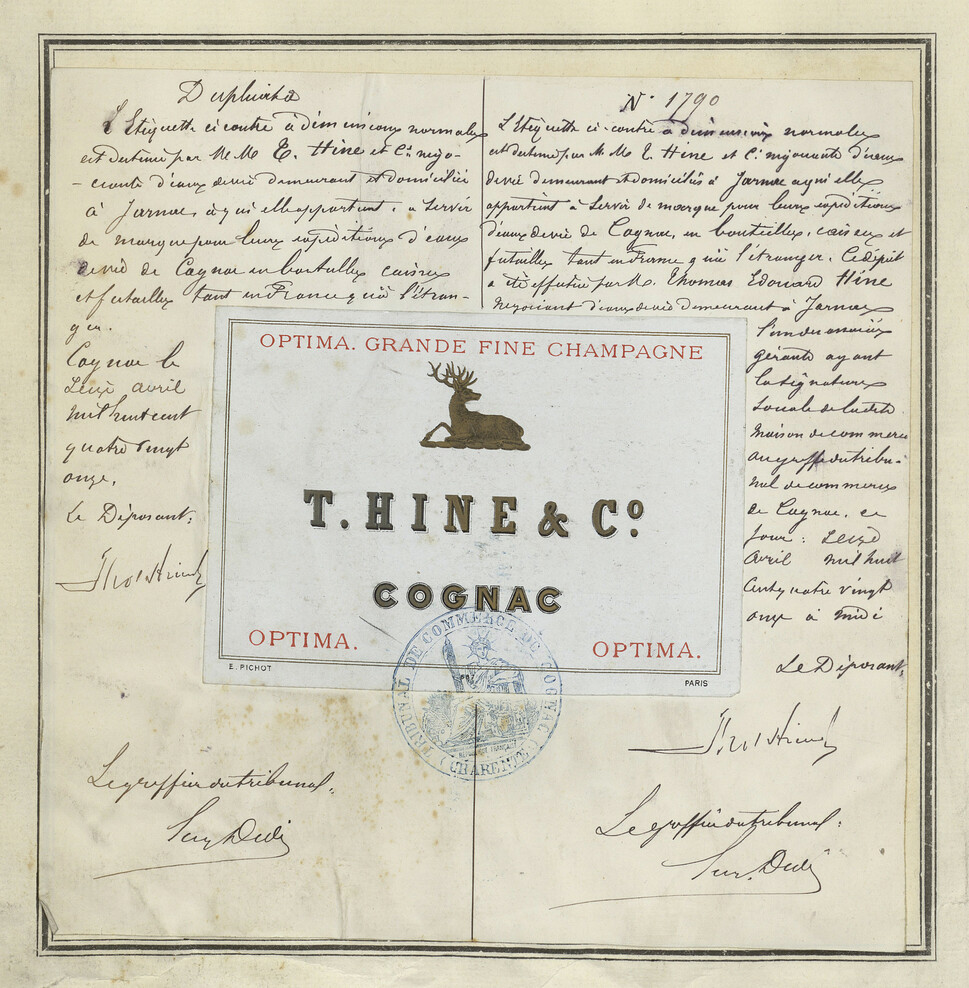 Duplicata
L'Etiquette ci contre à dimensions normales
est destinée par M M T. Hine et Cie négo-
-ciants d'eaux de vie demeurant et domiciliés
à Jarnac, à qui elle appartient, à servir
de marque pour leurs expéditions d'eaux
de vie de Cognac en bouteilles caisses
et futailles tant en France qu'à l'étran-
ger.
Cognac le
seize avril
mil huit cent
quatre vingt
onze.
Le Déposant:
Le greffier du tribunal:
N° 1790
L'Etiquette ci-contre à dimensions normales
est destinée par M. M T. Hine et Cie négociants d'eaux
de vie demeurant et domiciliés à Jarnac a qui elle
appartient à servir de marque pour leurs expéditions
d'eaux de vie de Cognac, en bouteilles, caisses et
futailles tant en France qu'à l'étranger. Ce dépôt
a été effectué par M. Thomas Edouard Hine
négociant d'eaux de vie demeurant à Jarnac
l'un des associés
gérants ayant
la signature
sociale de ladite
maison de commerce
au greffe du tribu-
nal de commerce
de Cognac, ce
jour: seize
avril mil huit
cent quatre vingt
onze à midi
Le Déposant,
Le greffier du tribunal:
OPTIMA. GRANDE FINE CHAMPAGNE
T. HINE & Co.
COGNAC
OPTIMA. OPTIMA.
E. PICHOT PARIS
TRIBUNAL DE COMMERCE DE COGNAC
RÉPUBLIQUE FRANÇAISE
(CHARENTE)